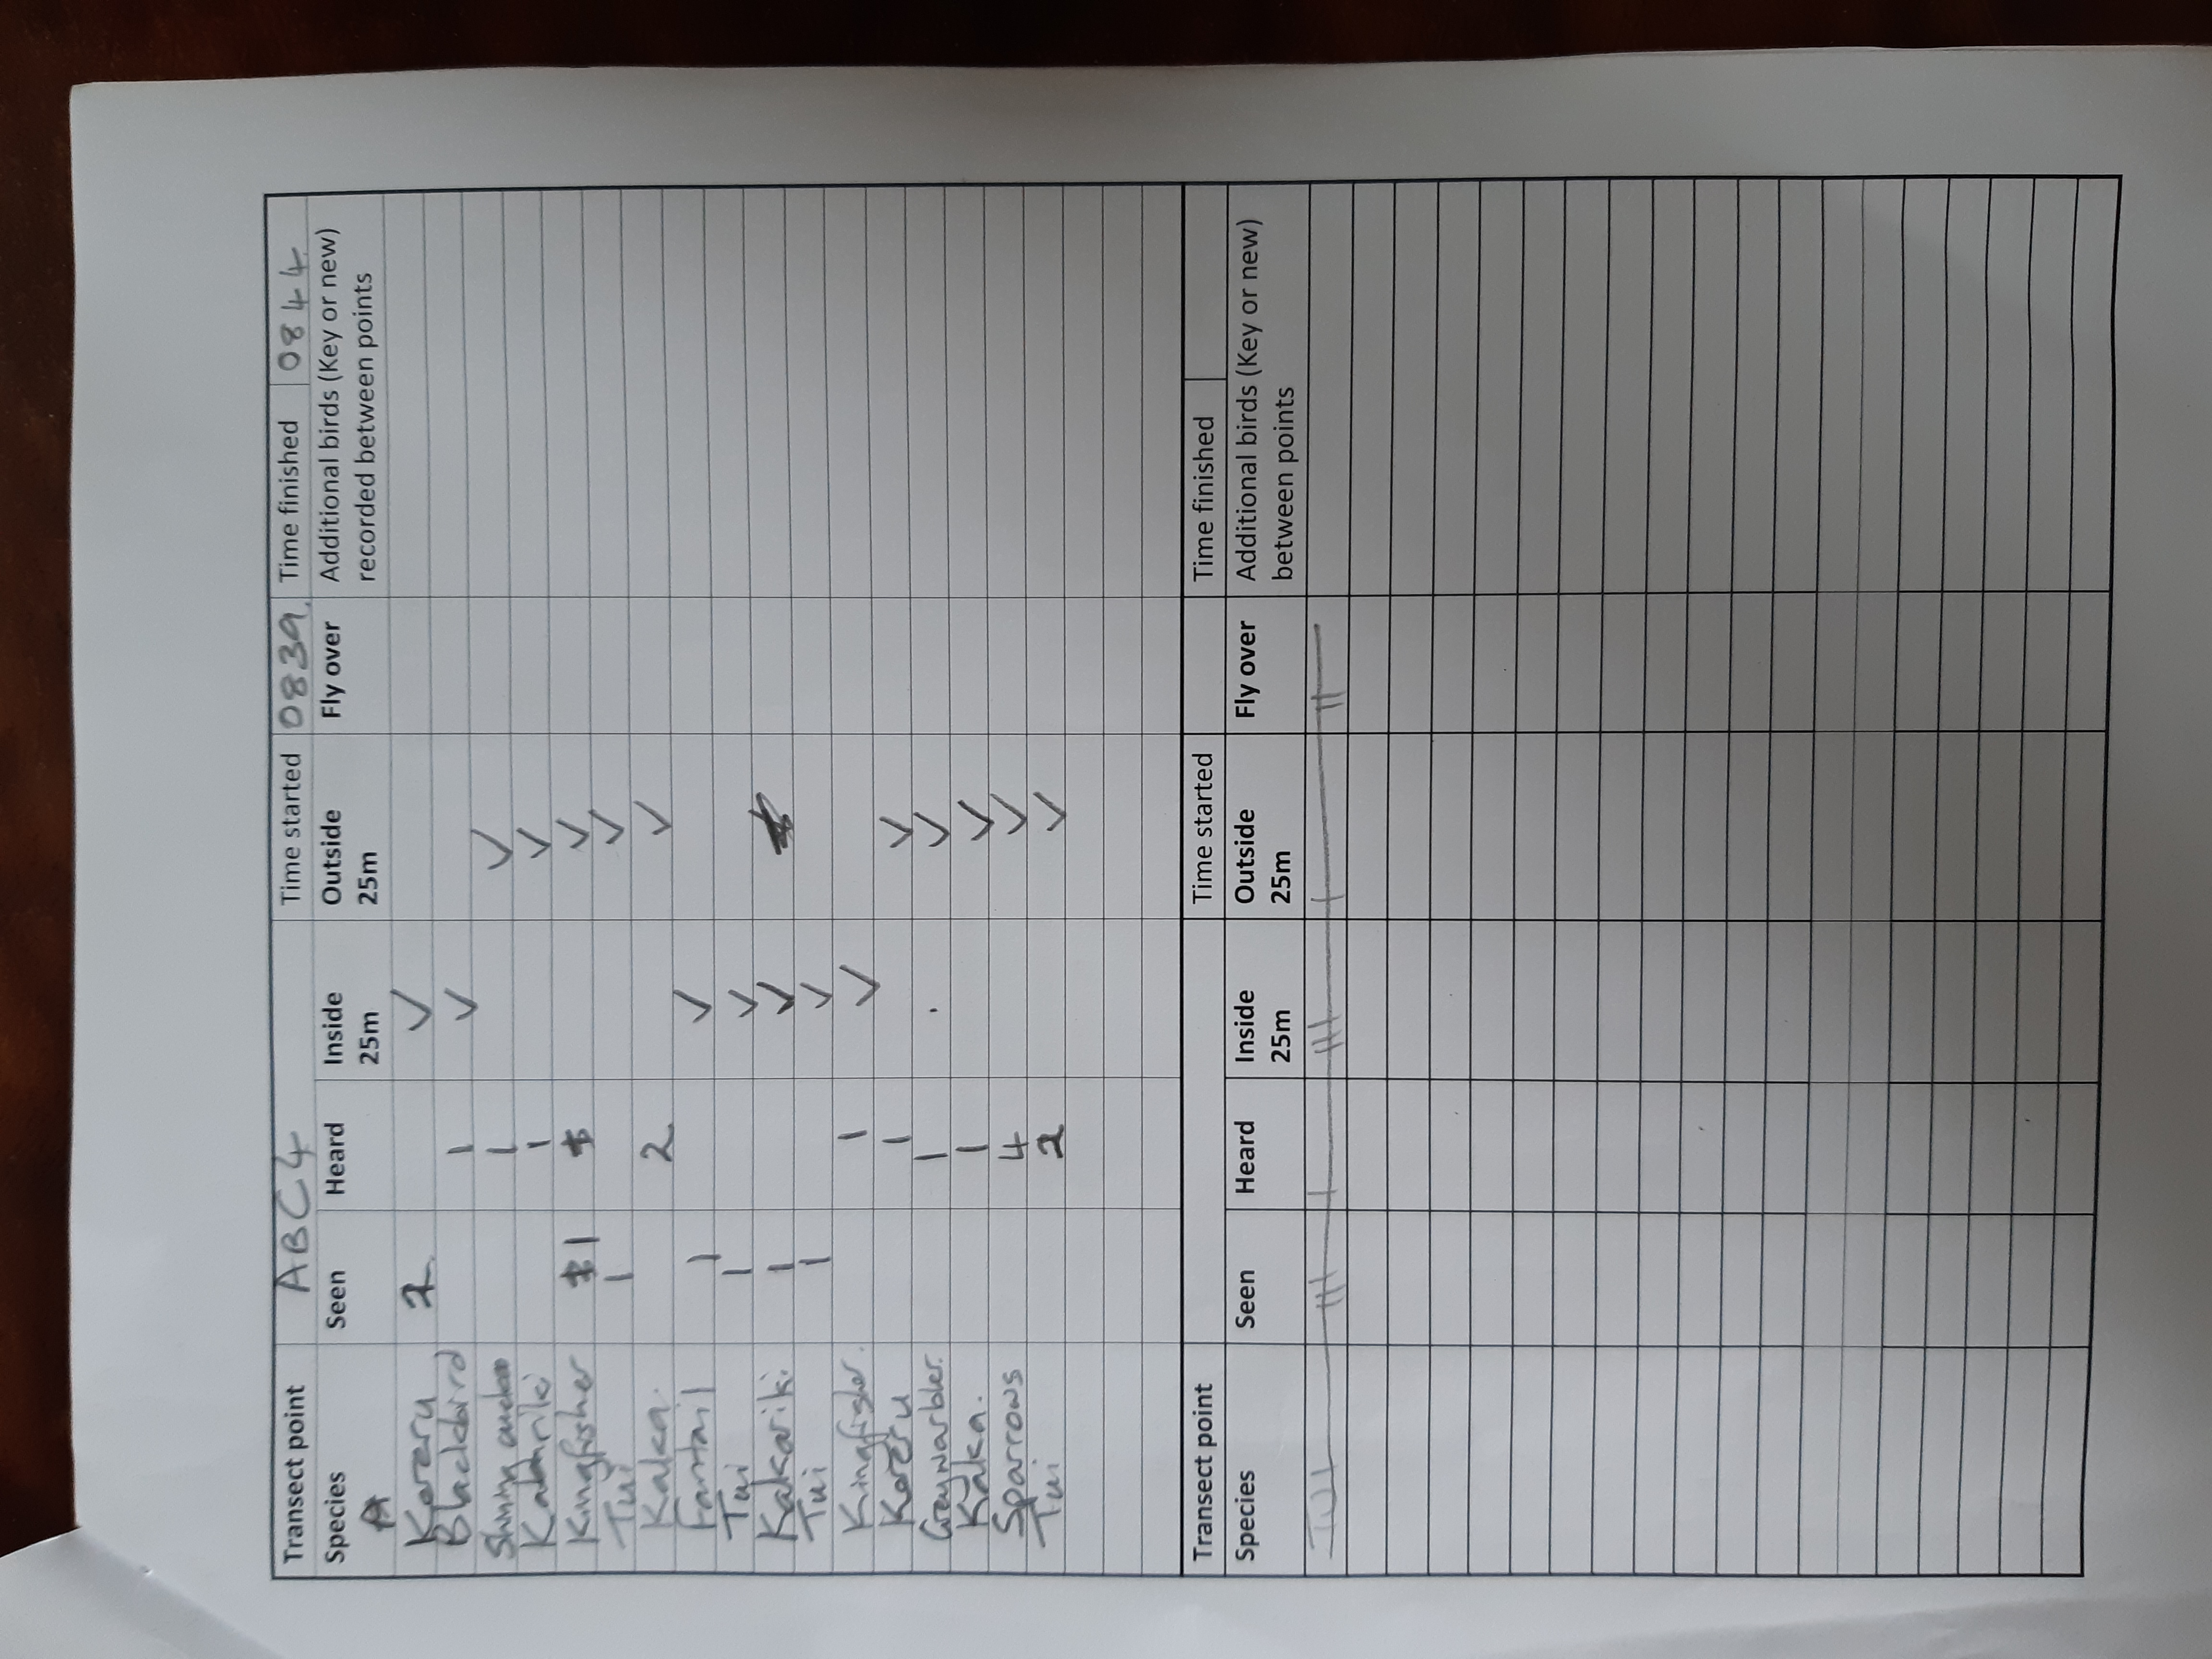 Transect point ABC4 Time started 0839. Time finished 0844
Species Seen Heard Inside 25m Outside 25m Fly over Additional birds (Key or new) recorded between points
A
Kereru 2 ✓
Blackbird 1 ✓
Shining cuckoo 1 ✓
Kakariki 1 ✓
Kingfisher 1 ✓
Tui 1 ✓
Kaka. 2 ✓
Fantail 1 ✓
Tui 1 ✓
Kakariki 1 ✓
Tui 1 ✓
Kingfisher. 1 ✓
Kereru 1 ✓
Greywarbler. 1 ✓
Kaka. 1 ✓
Sparrows 4 ✓
Tui 2 ✓
Transect point Time started Time finished
Species Seen Heard Inside 25m Outside 25m Fly over Additional birds (Key or new) between points
TUI III I III I II